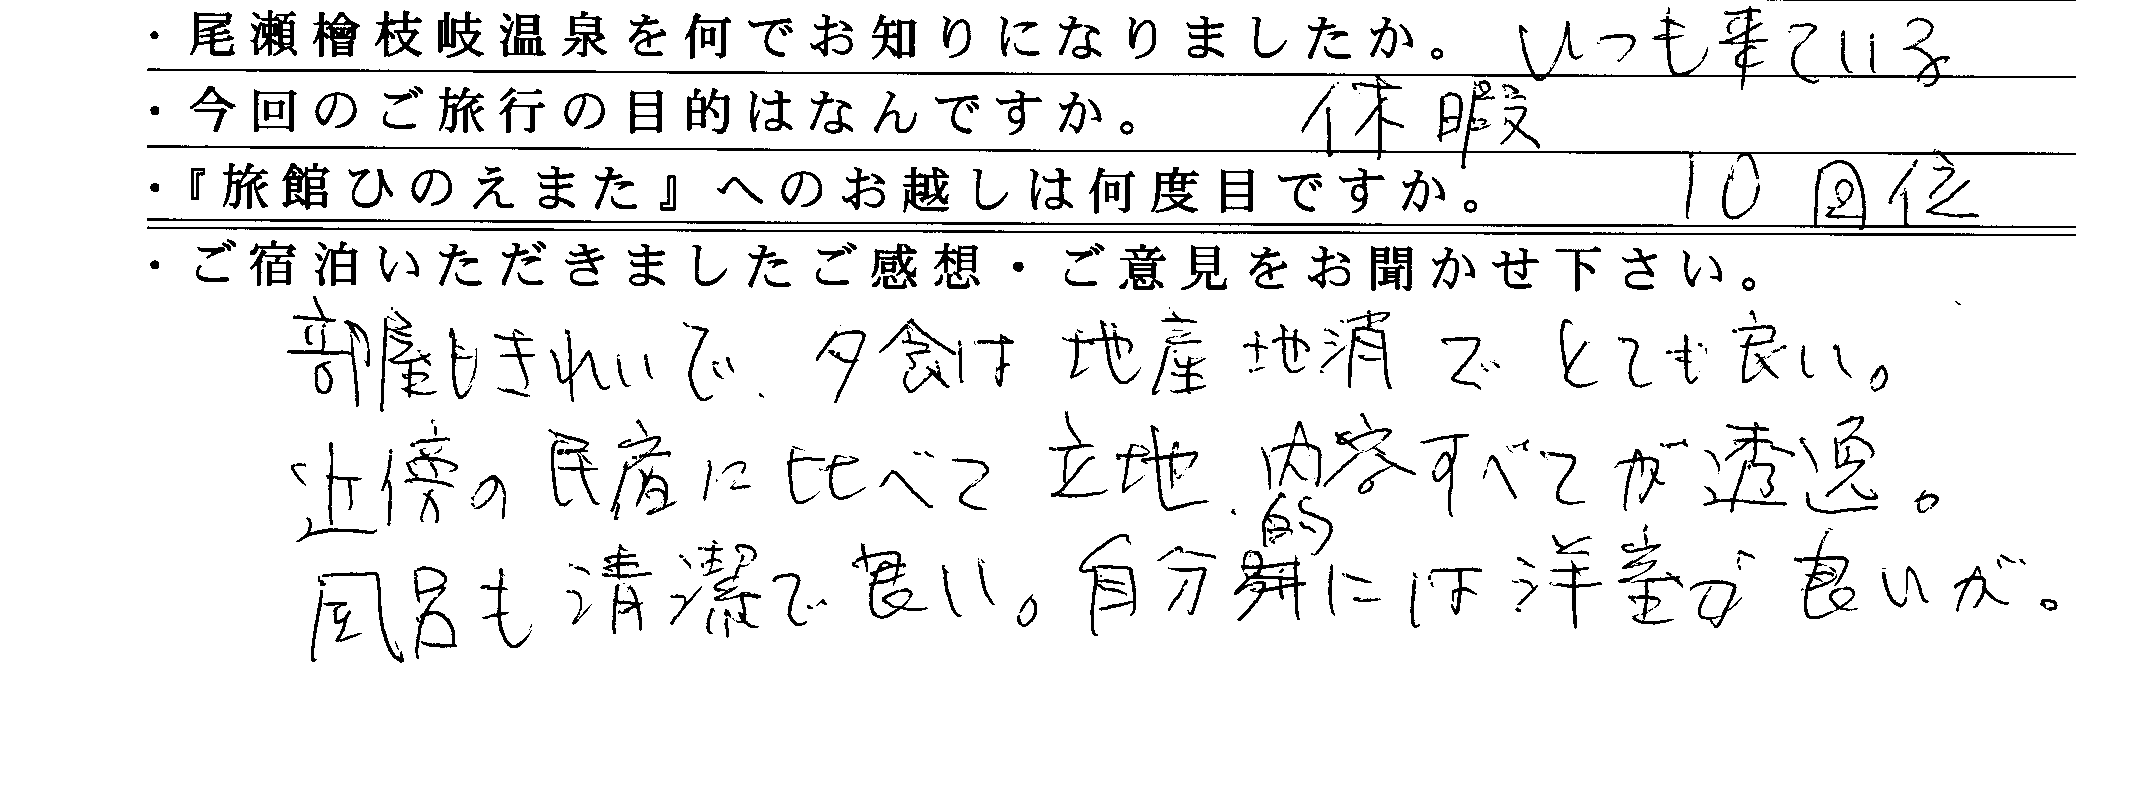 ・尾瀬檜枝岐温泉を何でお知りになりましたか。 いつも来ている
・今回のご旅行の目的はなんですか。 休暇
・『旅館ひのえまた』へのお越しは何度目ですか。 10回位
・ご宿泊いただきましたご感想・ご意見をお聞かせ下さい。
部屋もきれいで、夕食は地産地消でとても良い。
近傍の民宿に比べて立地、内容すべてが透逸。
風呂も清潔で良い。自分的には洋室が良いが。